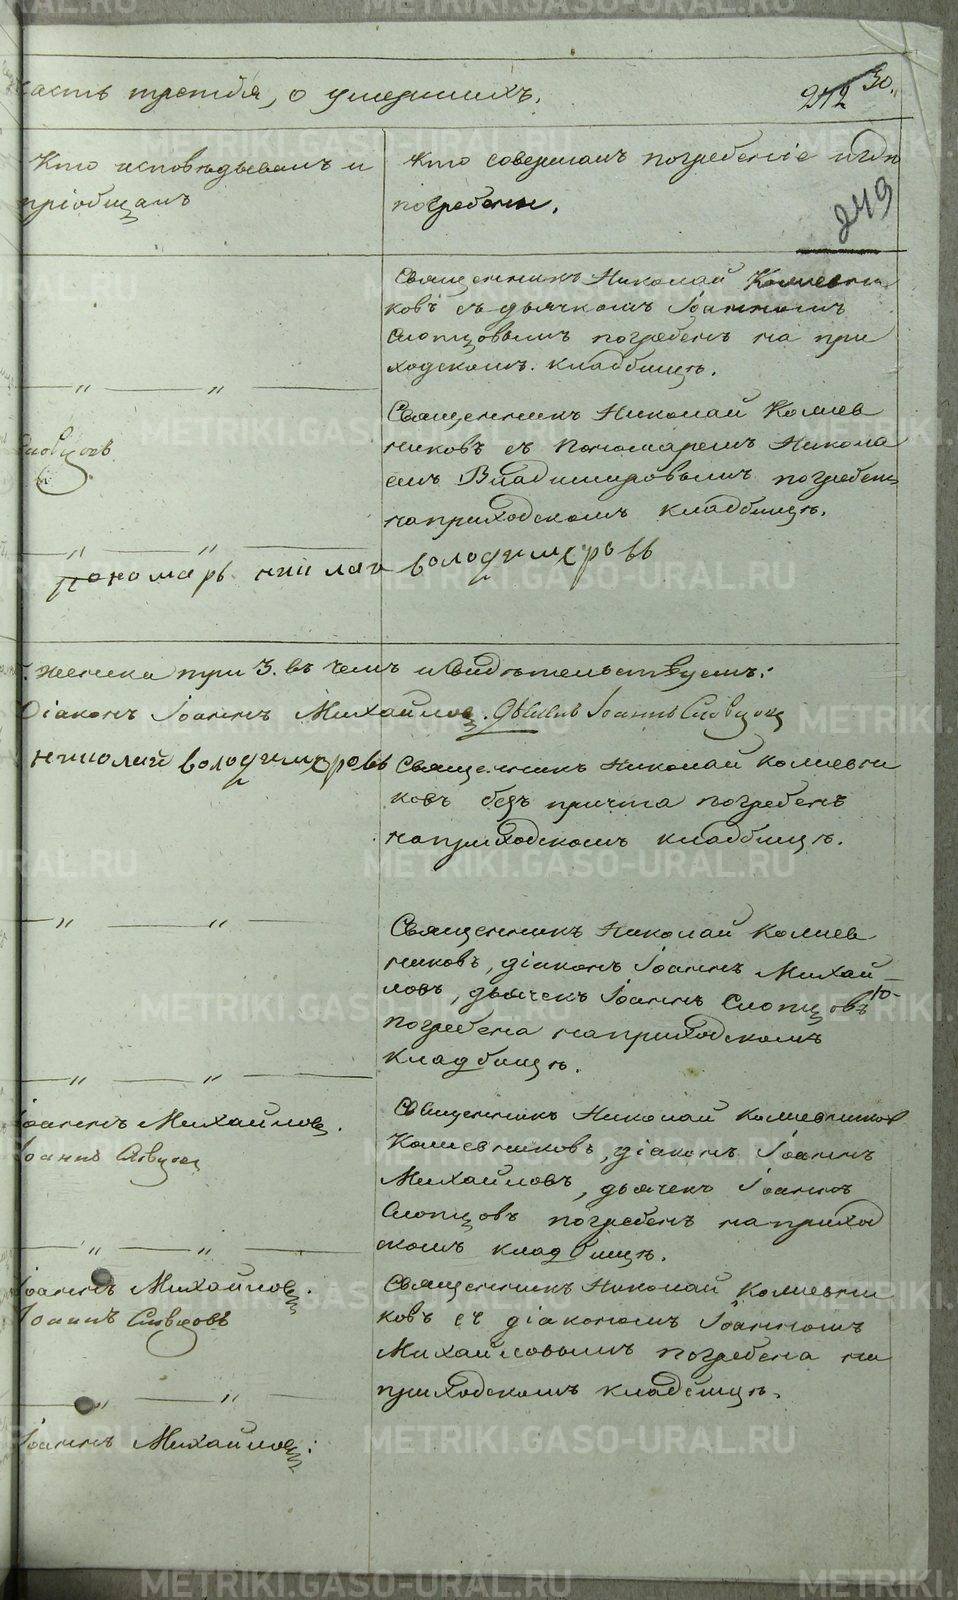 часть третья, о умершихъ.
30.
212
249
Кто исповѣдывалъ и
пріобщалъ
Кто совершалъ погребеніе и гдѣ
погребены.
Священникъ Николай Колмевни
ковъ съ дьячкомъ Іоанномъ
Словцовымъ погребенъ на при
ходскомъ кладбищѣ.
Словцовъ
Священникъ Николай Колмев
никовъ съ пономаремъ Никола
емъ Владимировымъ погребенъ
на приходскомъ кладбищѣ.
пономарь николаи володимеровъ
женска три 3. въ чемъ и свидѣтельствуемъ:
Діаконъ Іоаннъ Михайловъ. Іоаннъ Словцовъ
николай володимеровъ
Священникъ Николай Колмевни
ковъ безъ причта погребенъ
на приходскомъ кладбищѣ.
Священникъ Николай Колмев
никовъ, діаконъ Іоаннъ Михай
ловъ, дьячекъ Іоаннъ Словцовъ
погребена на приходскомъ
кладбищѣ.
Іоаннъ Михайловъ.
Іоаннъ Словцовъ
Священникъ Николай Колмевниковъ
Колмевниковъ, діаконъ Іоаннъ
Михайловъ, дьячекъ Іоаннъ
Словцовъ погребенъ на приход
скомъ кладбищѣ.
Іоаннъ Михайловъ.
Іоаннъ Словцовъ
Священникъ Николай Колмевни
ковъ съ діакономъ Іоанномъ
Михайловымъ погребена на
приходскомъ кладбищѣ.
Іоаннъ Михайловъ:
METRIKI.GASO-URAL.RU